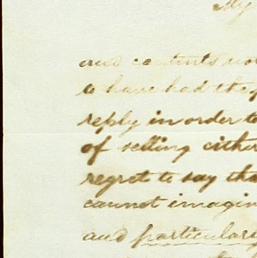 My
and contents no
to have had the p
reply in order to
of selling either
regret to say tha
cannot imagin
and particular